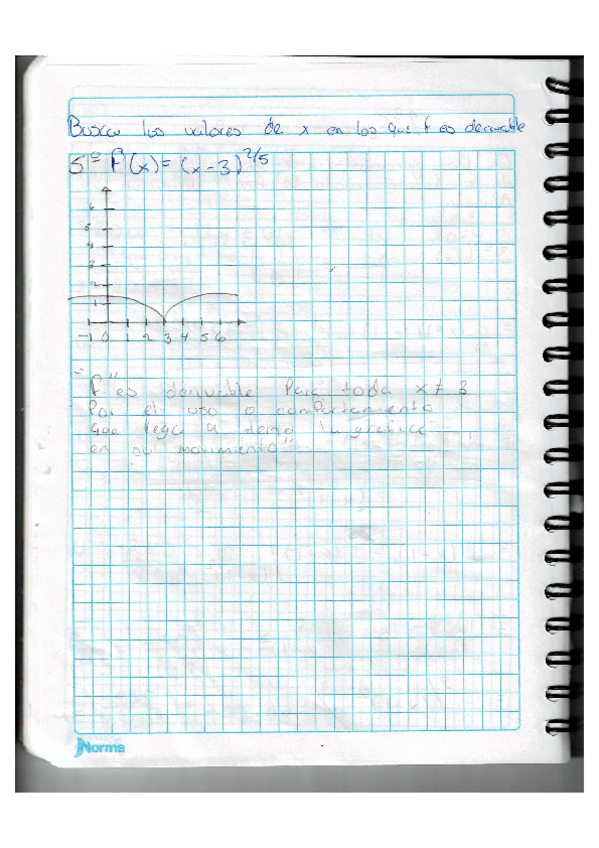 Buscar los valores de x en los que f es derivable
5º f(x)= (x-3)^2/5
6
5
4
3
2
1
-1 0 1 2 3 4 5 6
f es derivable para toda x ≠ 3
Por el uso o comportamiento
que llega a tener la grafica
en su movimiento"
Norma